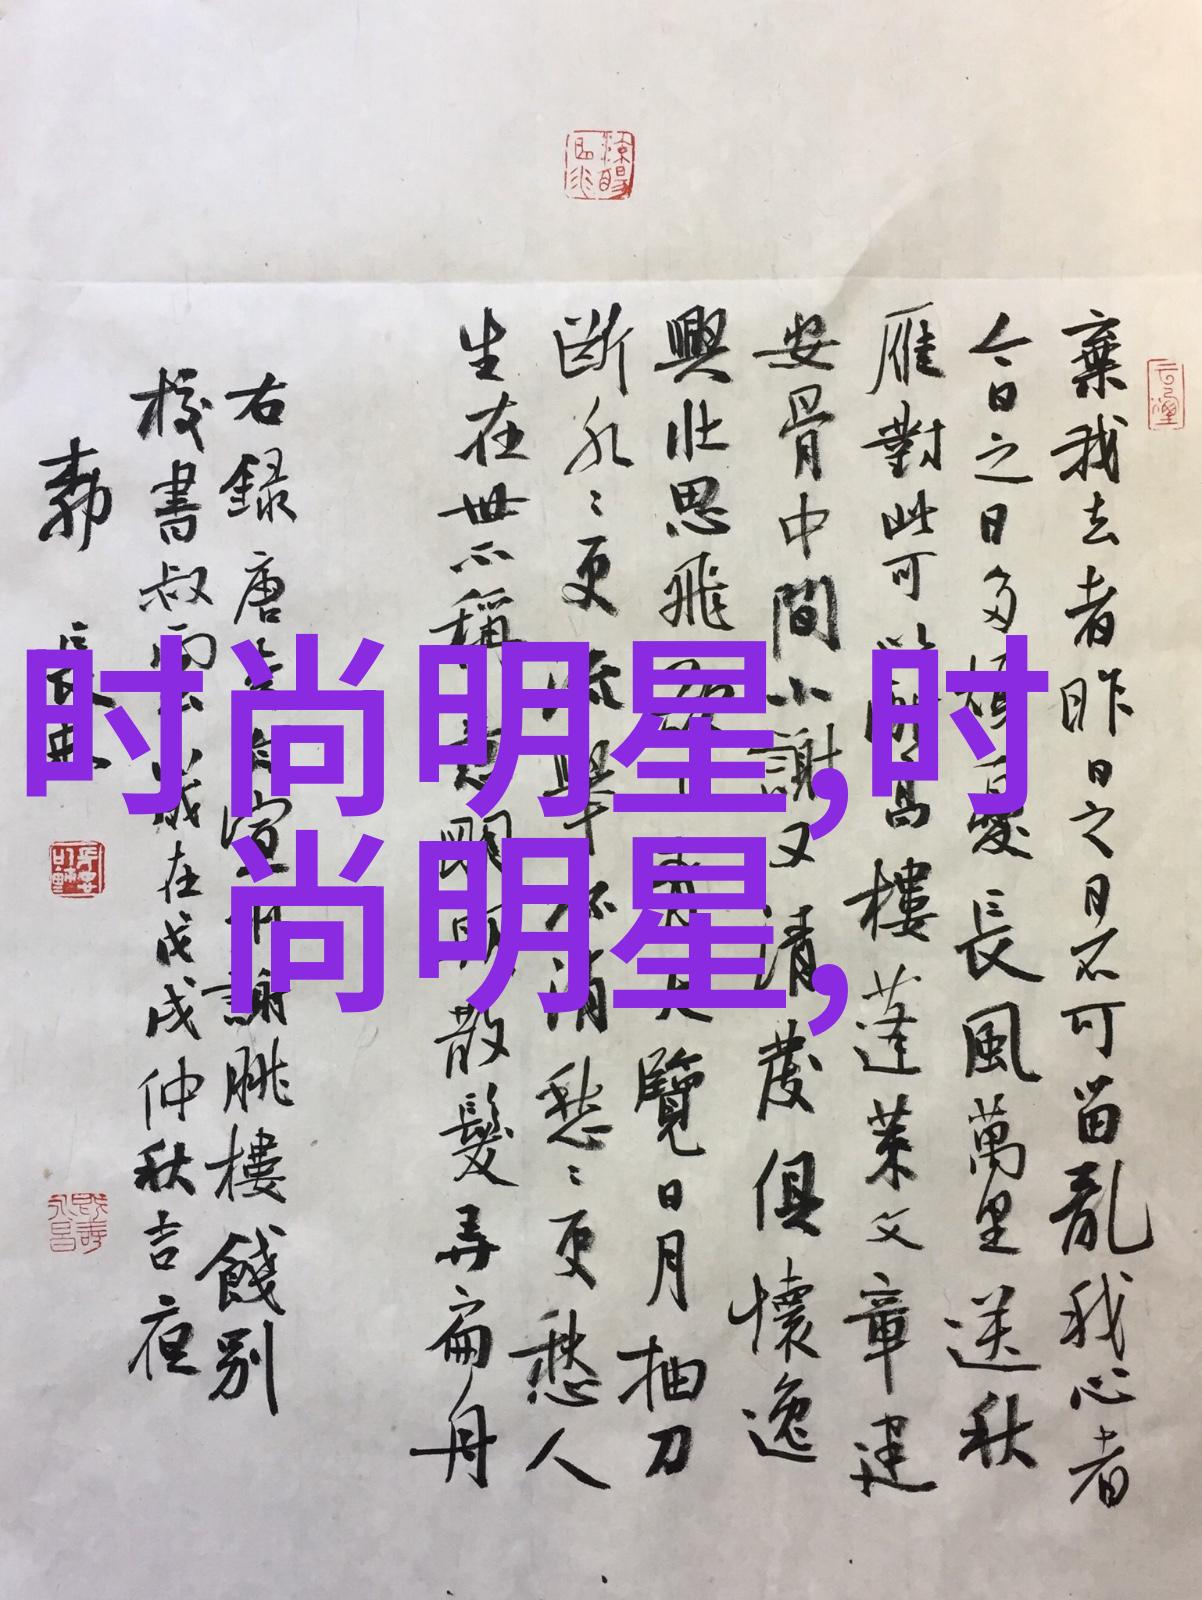 棄我去者昨日之日不可留亂我心者
今日之日多煩憂長風萬里送秋
雁對此可以酣高樓蓬萊文章建
安骨中間小謝又清發俱懷逸
興壯思飛欲上青天覽日月抽刀
斷水〻更流舉杯消愁〻更愁人
生在世不稱意明朝散髮弄扁舟
右録唐李白宣州謝朓樓餞別
校書叔雲歲在戊戌仲秋吉夜
时尚明星,时
尚明星,